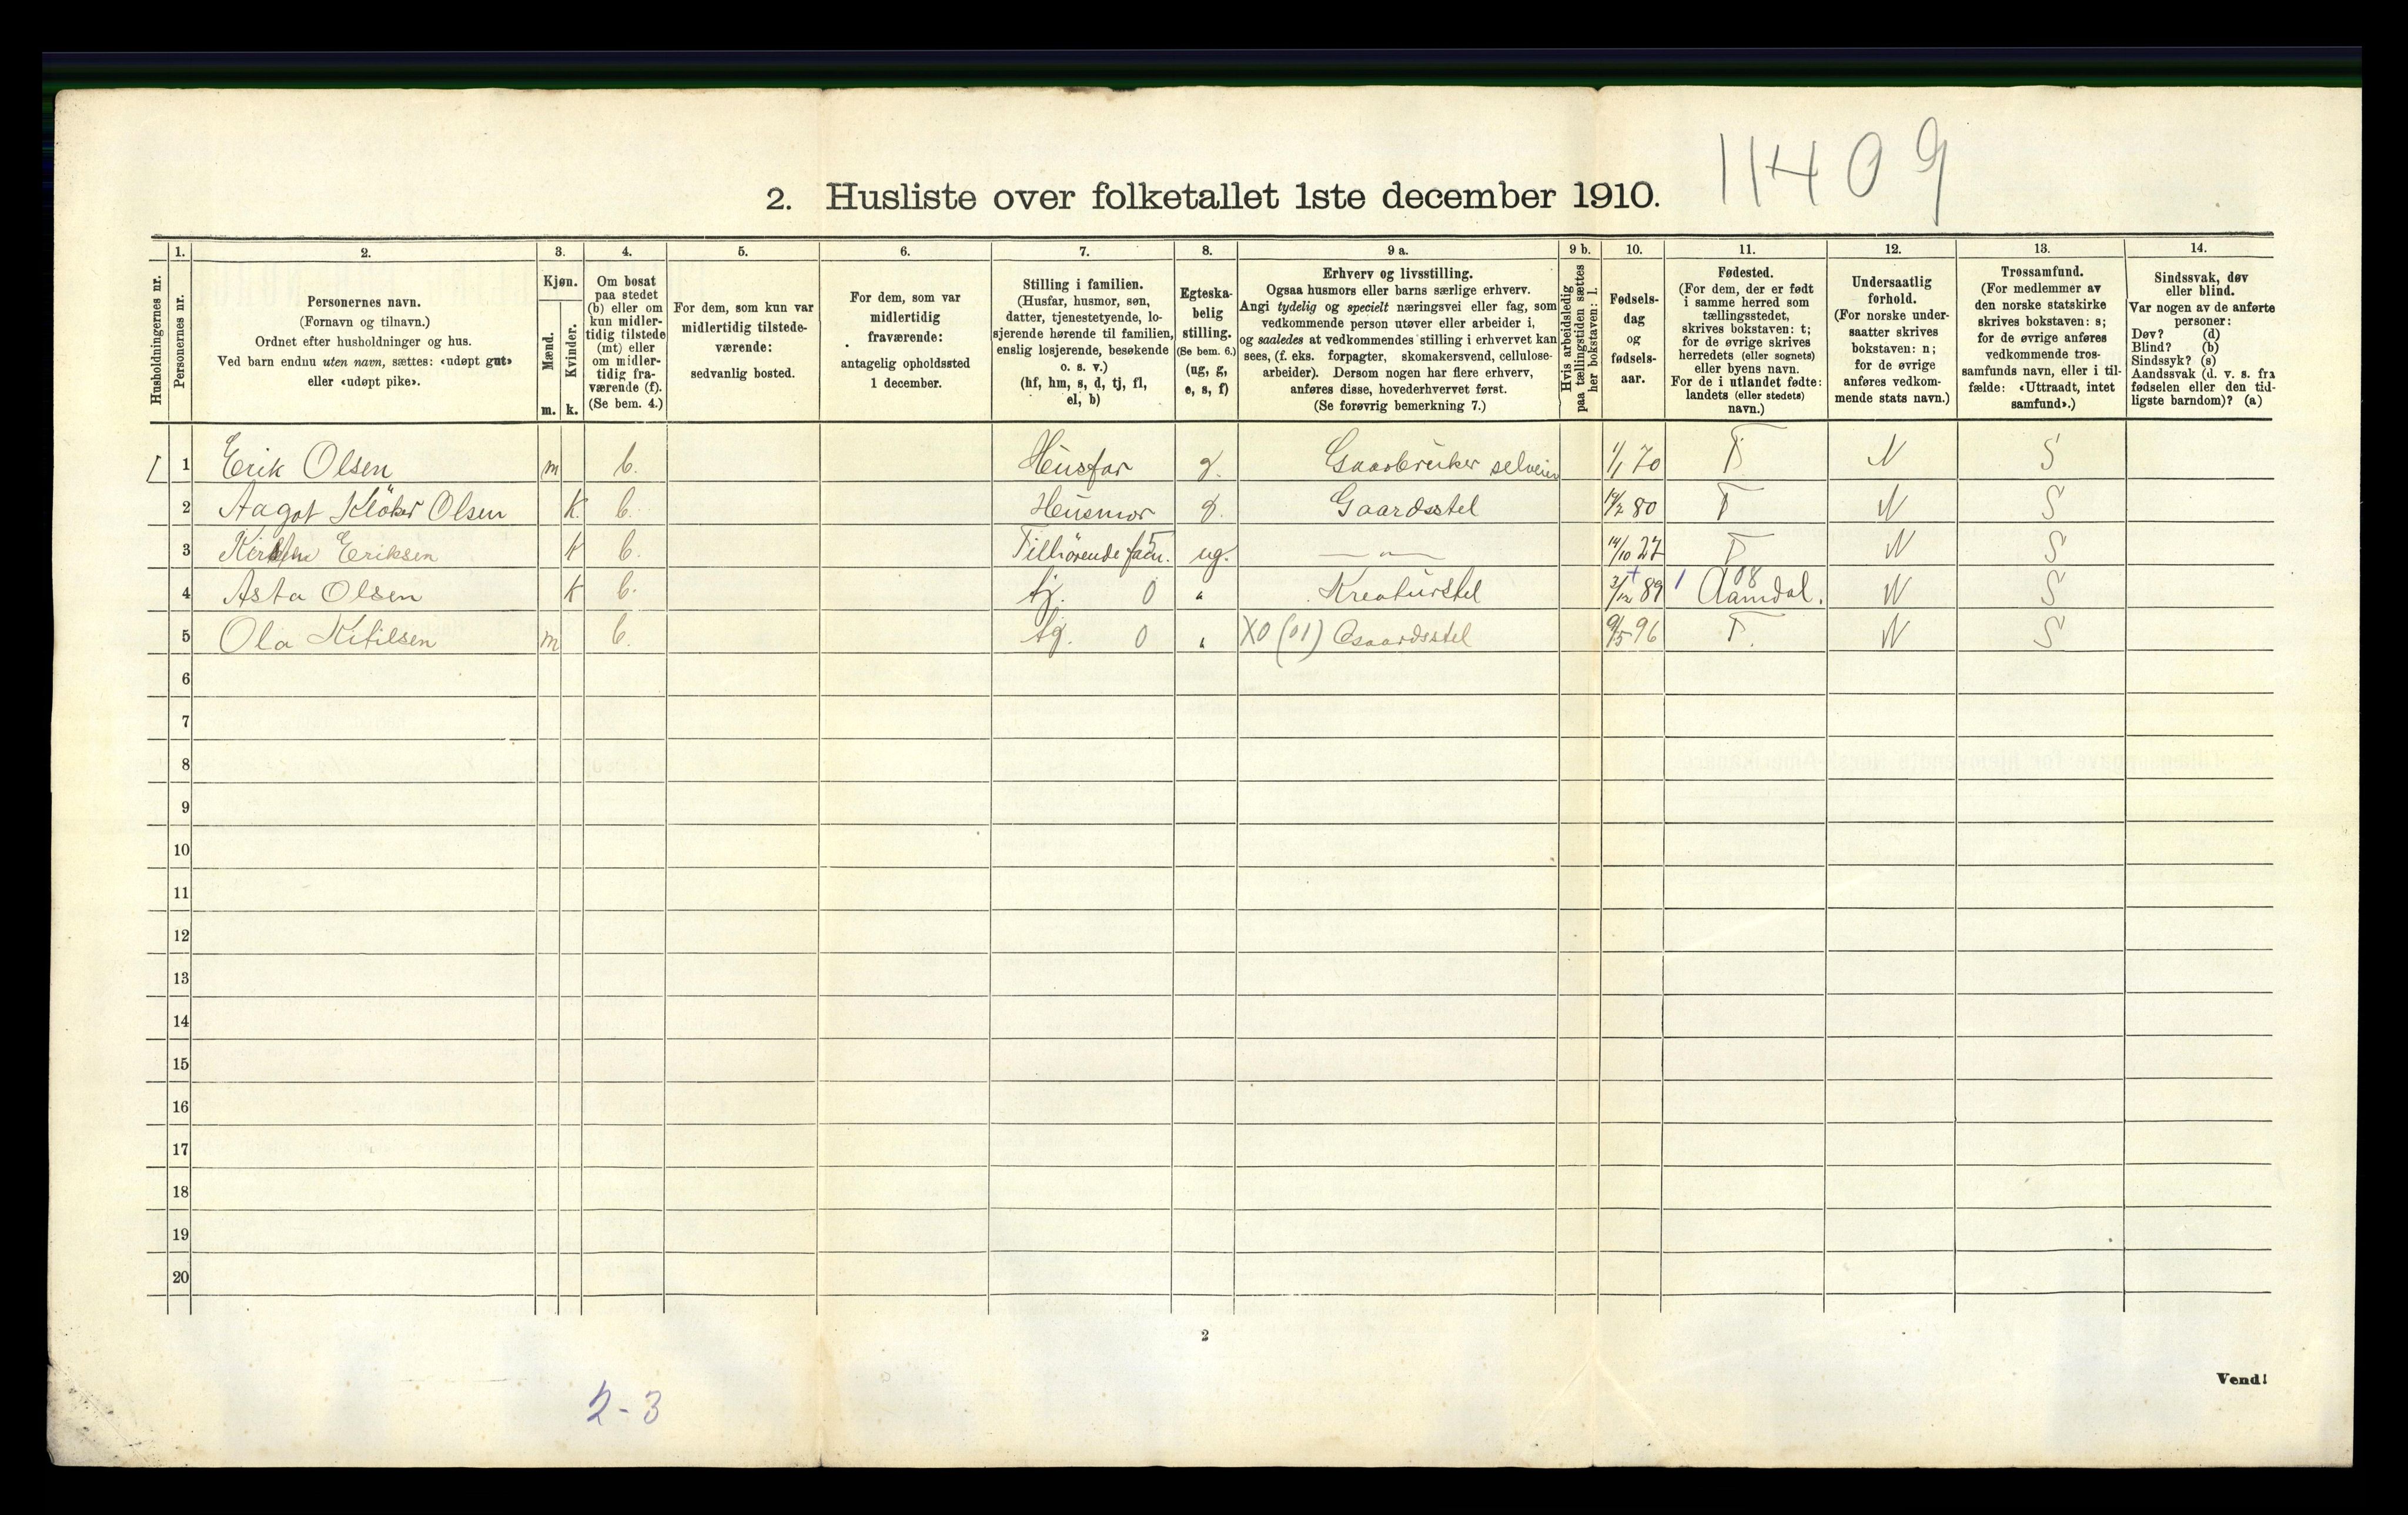 11409
2. Husliste over folketallet 1ste december 1910.
1. 2. 3. 4. 5. 6. 7. 8. 9 a. 9 b. 10. 11. 12. 13. 14.
Husholdningernes nr.
Personernes nr.
Personernes navn.
(Fornavn og tilnavn.)
Ordnet efter husholdninger og hus.
Ved barn endnu uten navn, sættes: «udøpt gut»
eller «udøpt pike».
Kjøn.
Mænd.
Kvinder.
m. k.
Om bosat
paa stedet
(b) eller om
kun midler-
tidig tilstede
(mt) eller
om midler-
tidig fra-
værende (f).
(Se bem. 4.)
For dem, som kun var
midlertidig tilstede-
værende:
sedvanlig bosted.
For dem, som var
midlertidig
fraværende:
antagelig opholdssted
1 december.
Stilling i familien.
(Husfar, husmor, søn,
datter, tjenestetyende, lo-
sjerende hørende til familien,
enslig losjerende, besøkende
o. s. v.)
(hf, hm, s, d, tj, fl,
el, b)
Egteska-
belig
stilling.
(Se bem. 6.)
(ug, g,
e, s, f)
Erhverv og livsstilling.
Ogsaa husmors eller barns særlige erhverv.
Angi tydelig og specielt næringsvei eller fag, som
vedkommende person utøver eller arbeider i,
og saaledes at vedkommendes stilling i erhvervet kan
sees, (f. eks. forpagter, skomakersvend, cellulose-
arbeider). Dersom nogen har flere erhverv,
anføres disse, hovederhvervet først.
(Se forøvrig bemerkning 7.)
Hvis arbeidsledig
paa tællingstiden sættes
her bokstaven: l.
Fødsels-
dag
og
fødsels-
aar.
Fødested.
(For dem, der er født
i samme herred som
tællingsstedet,
skrives bokstaven: t;
for de øvrige skrives
herredets (eller sognets)
eller byens navn.
For de i utlandet fødte:
landets (eller stedets)
navn.)
Undersaatlig
forhold.
(For norske under-
saatter skrives
bokstaven: n;
for de øvrige
anføres vedkom-
mende stats navn.)
Trossamfund.
(For medlemmer av
den norske statskirke
skrives bokstaven: s;
for de øvrige anføres
vedkommende tros-
samfunds navn, eller i til-
fælde: «Uttraadt, intet
samfund».)
Sindssvak, døv
eller blind.
Var nogen av de anførte
personer:
Døv? (d)
Blind? (b)
Sindssyk? (s)
Aandssvak (d. v. s. fra
fødselen eller den tid-
ligste barndom)? (a)
1 1 Erik Olsen m b. Husfar g. Gaarbruker selveier 1/1 70 T N S
2 Aagot Klöker Olsen K b. Husmor g. Gaardsstel 80 T N S
3 Eriksen K b. Tilhörende fam. 5 ug. — „ — 14/10 27 T N S
4 Asta Olsen K b. tj. 0 " Kreaturstel 3/12 89 1 08 Aamdal. N S
5 Ola Kitilsen m b. tj. 0 " X0 (01) Gaardsstel 9/5 96 T. N S
6
7
8
9
10
11
12
13
14
15
16
17
18
19
20
2
Vend!
2-3